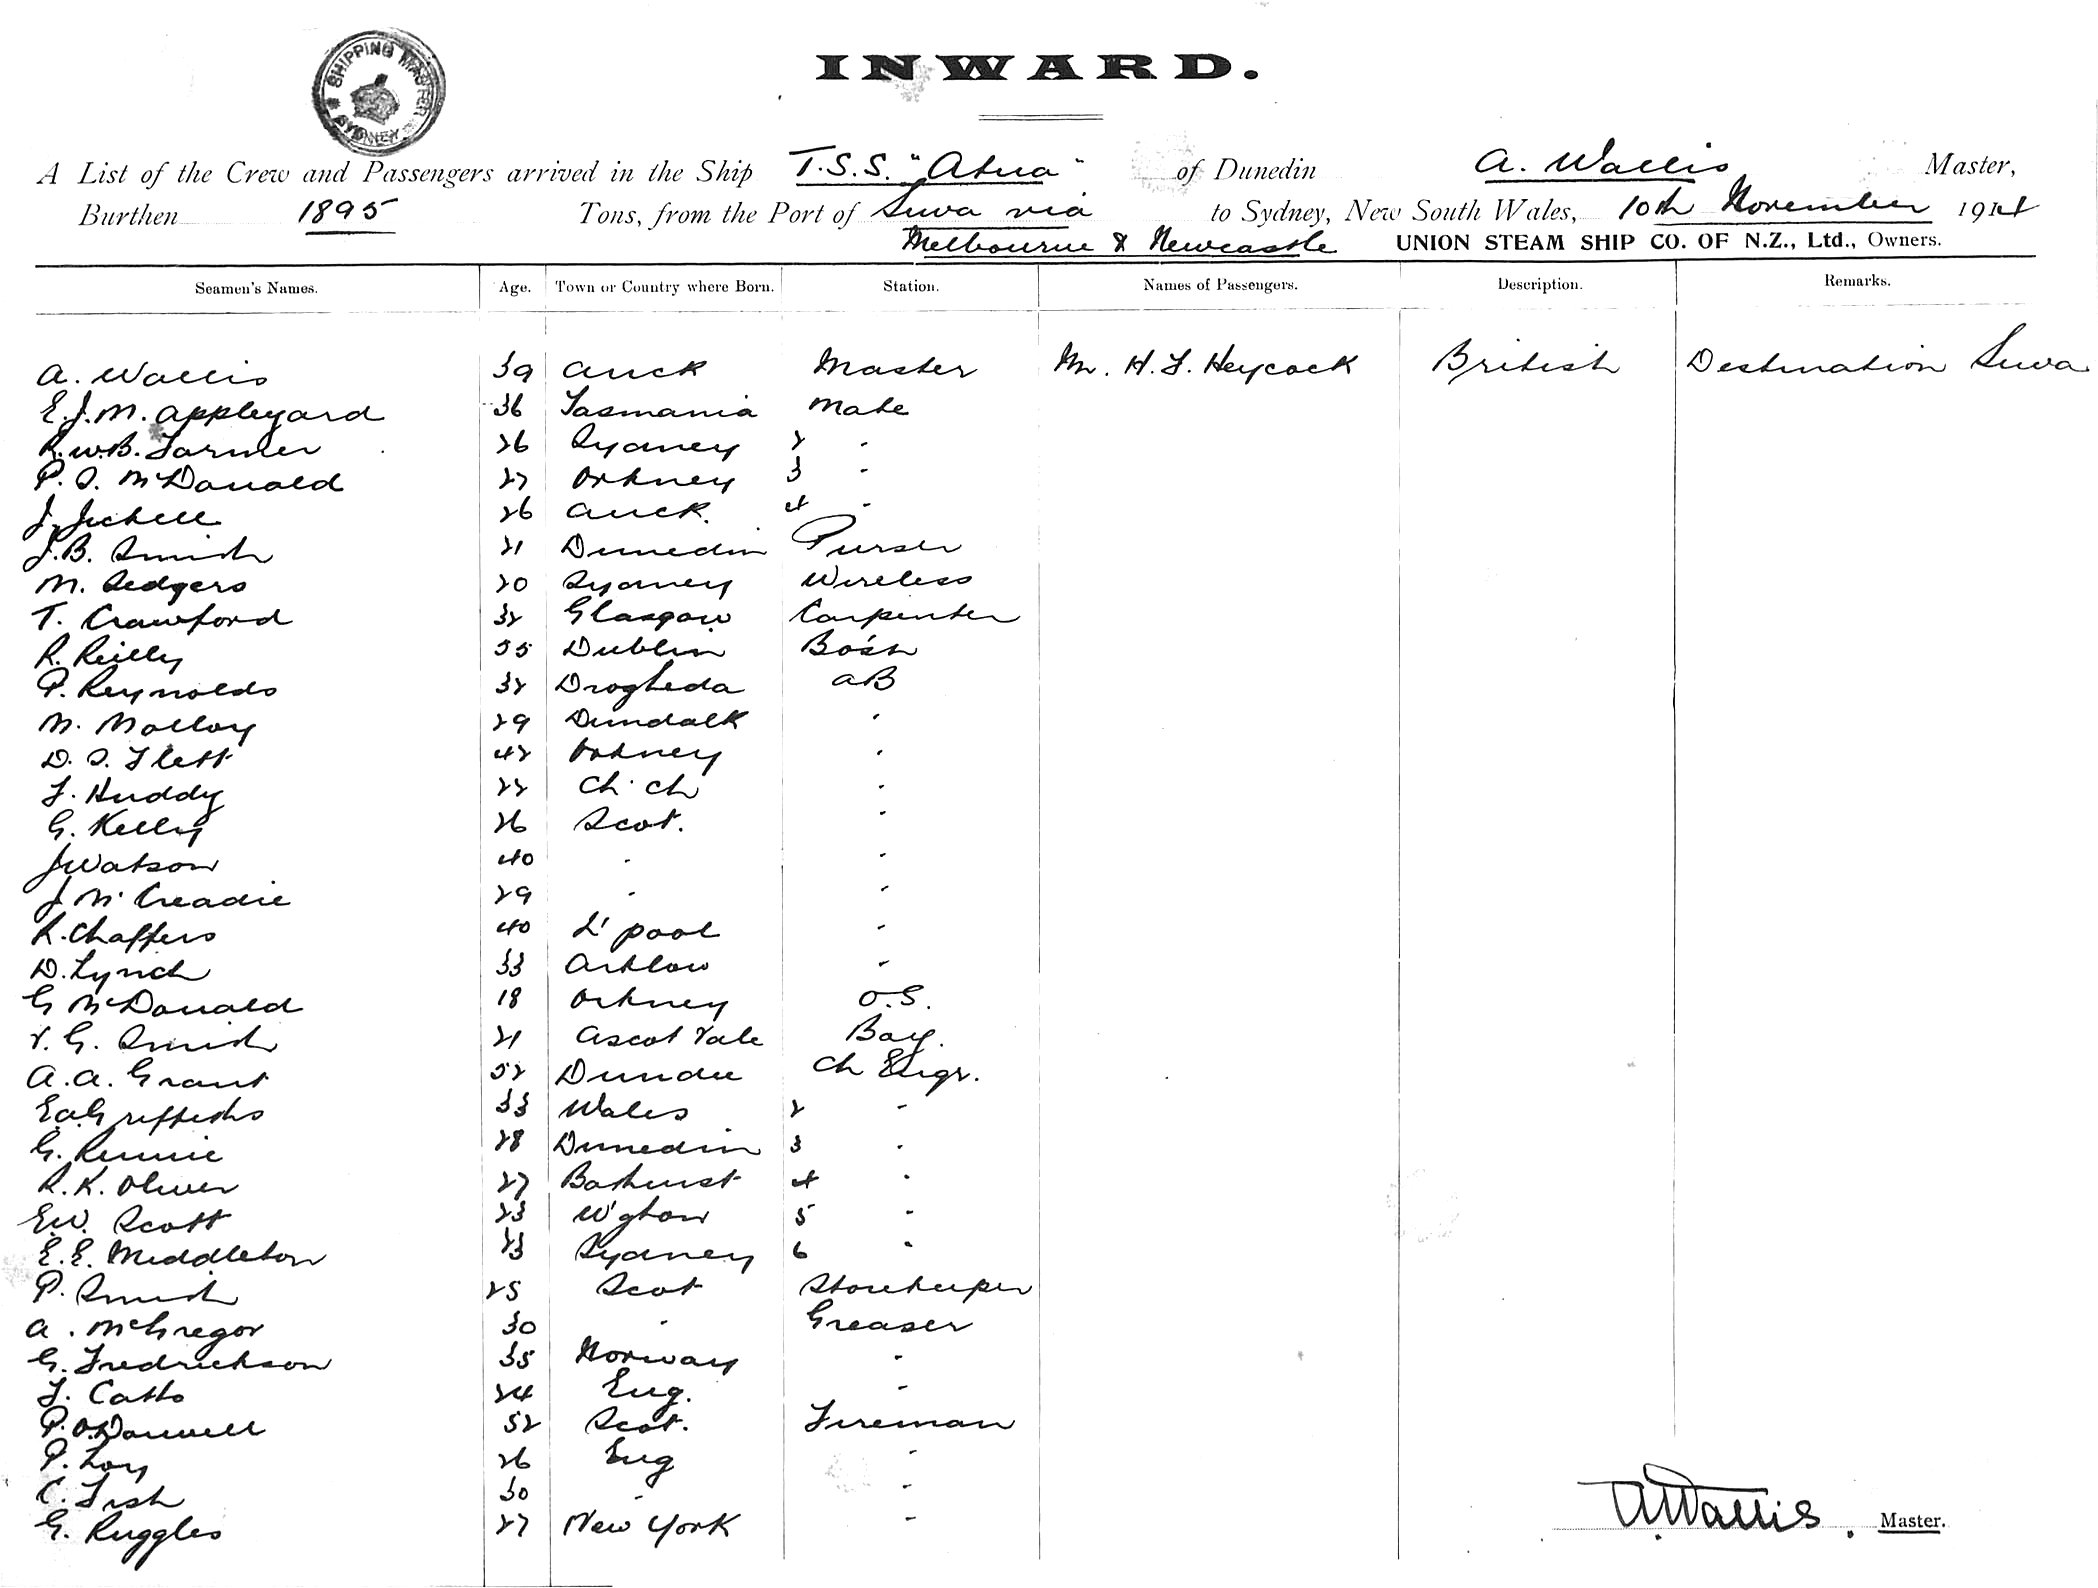 INWARD.
SHIPPING MASTER
SYDNEY
A List of the Crew and Passengers arrived in the Ship T.S.S. "Atua" of Dunedin A. Wallis Master,
Burthen 1895 Tons, from the Port of Suva via to Sydney, New South Wales, 10th November 1914
Melbourne & Newcastle UNION STEAM SHIP CO. OF N.Z., Ltd., Owners.
Seamen's Names. Age. Town or Country where Born. Station. Names of Passengers. Description. Remarks.
A. Wallis 39 Auck Master Mr. H. F. Heycock British Destination Suva
E.J.M. Appleyard 36 Tasmania Mate
R.W.B. Farmer 26 Sydney 2 "
P. S. McDonald 27 Orkney 3 "
J. 26 Auck. 4 "
J.B. Smith 21 Dunedin Purser
M. Sedgers 20 Sydney Wireless
T. Crawford 32 Glasgow Carpenter
R. Reilly 35 Dublin Bo'sn
P. Reynolds 32 Drogheda AB
M. Molloy 29 Dundalk "
D. S. Flett 42 Orkney "
F. Huddy 22 Ch. Ch "
G. Kelly 26 Scot. "
J Watson 40 " "
J. McCreadie 29 " "
R. Chaffers 40 L'pool "
D. Lynch 33 Arklow "
G McDonald 18 Orkney O.S.
V. G. Smith 21 Ascot Vale Boy.
A. A. Grant 52 Dundee Ch Engr.
E.A. Griffiths 33 Wales 2 "
G. Rennie 28 Dunedin 3 "
R. K. Oliver 27 Bathurst 4 "
E.W. Scott 23 W'gton 5 "
E. E. Middleton 23 Sydney 6 "
P. Smith 25 Scot Storekeeper
A. McGregor 30 " Greaser
G. Fredrickson 35 Norway "
F. Catto 24 Eng. "
P. O'Donnell 52 Scot. Fireman
P. Loy 26 Eng "
C. Fish 30 " "
G. Ruggles 27 New York "
A. Wallis. Master.